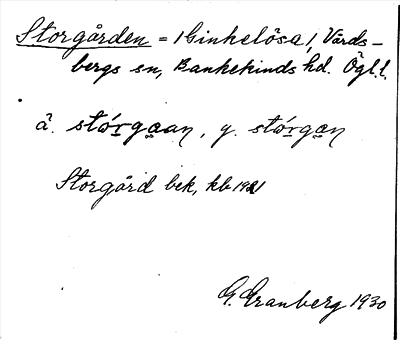 Storgården = /Ginkelösa/, Vårds-
bergs sn, Bankekinds hd. Ögl.l.
å. stórgaan, y. stórgan
Storgård bek, kb 1921
G. Granberg 1930